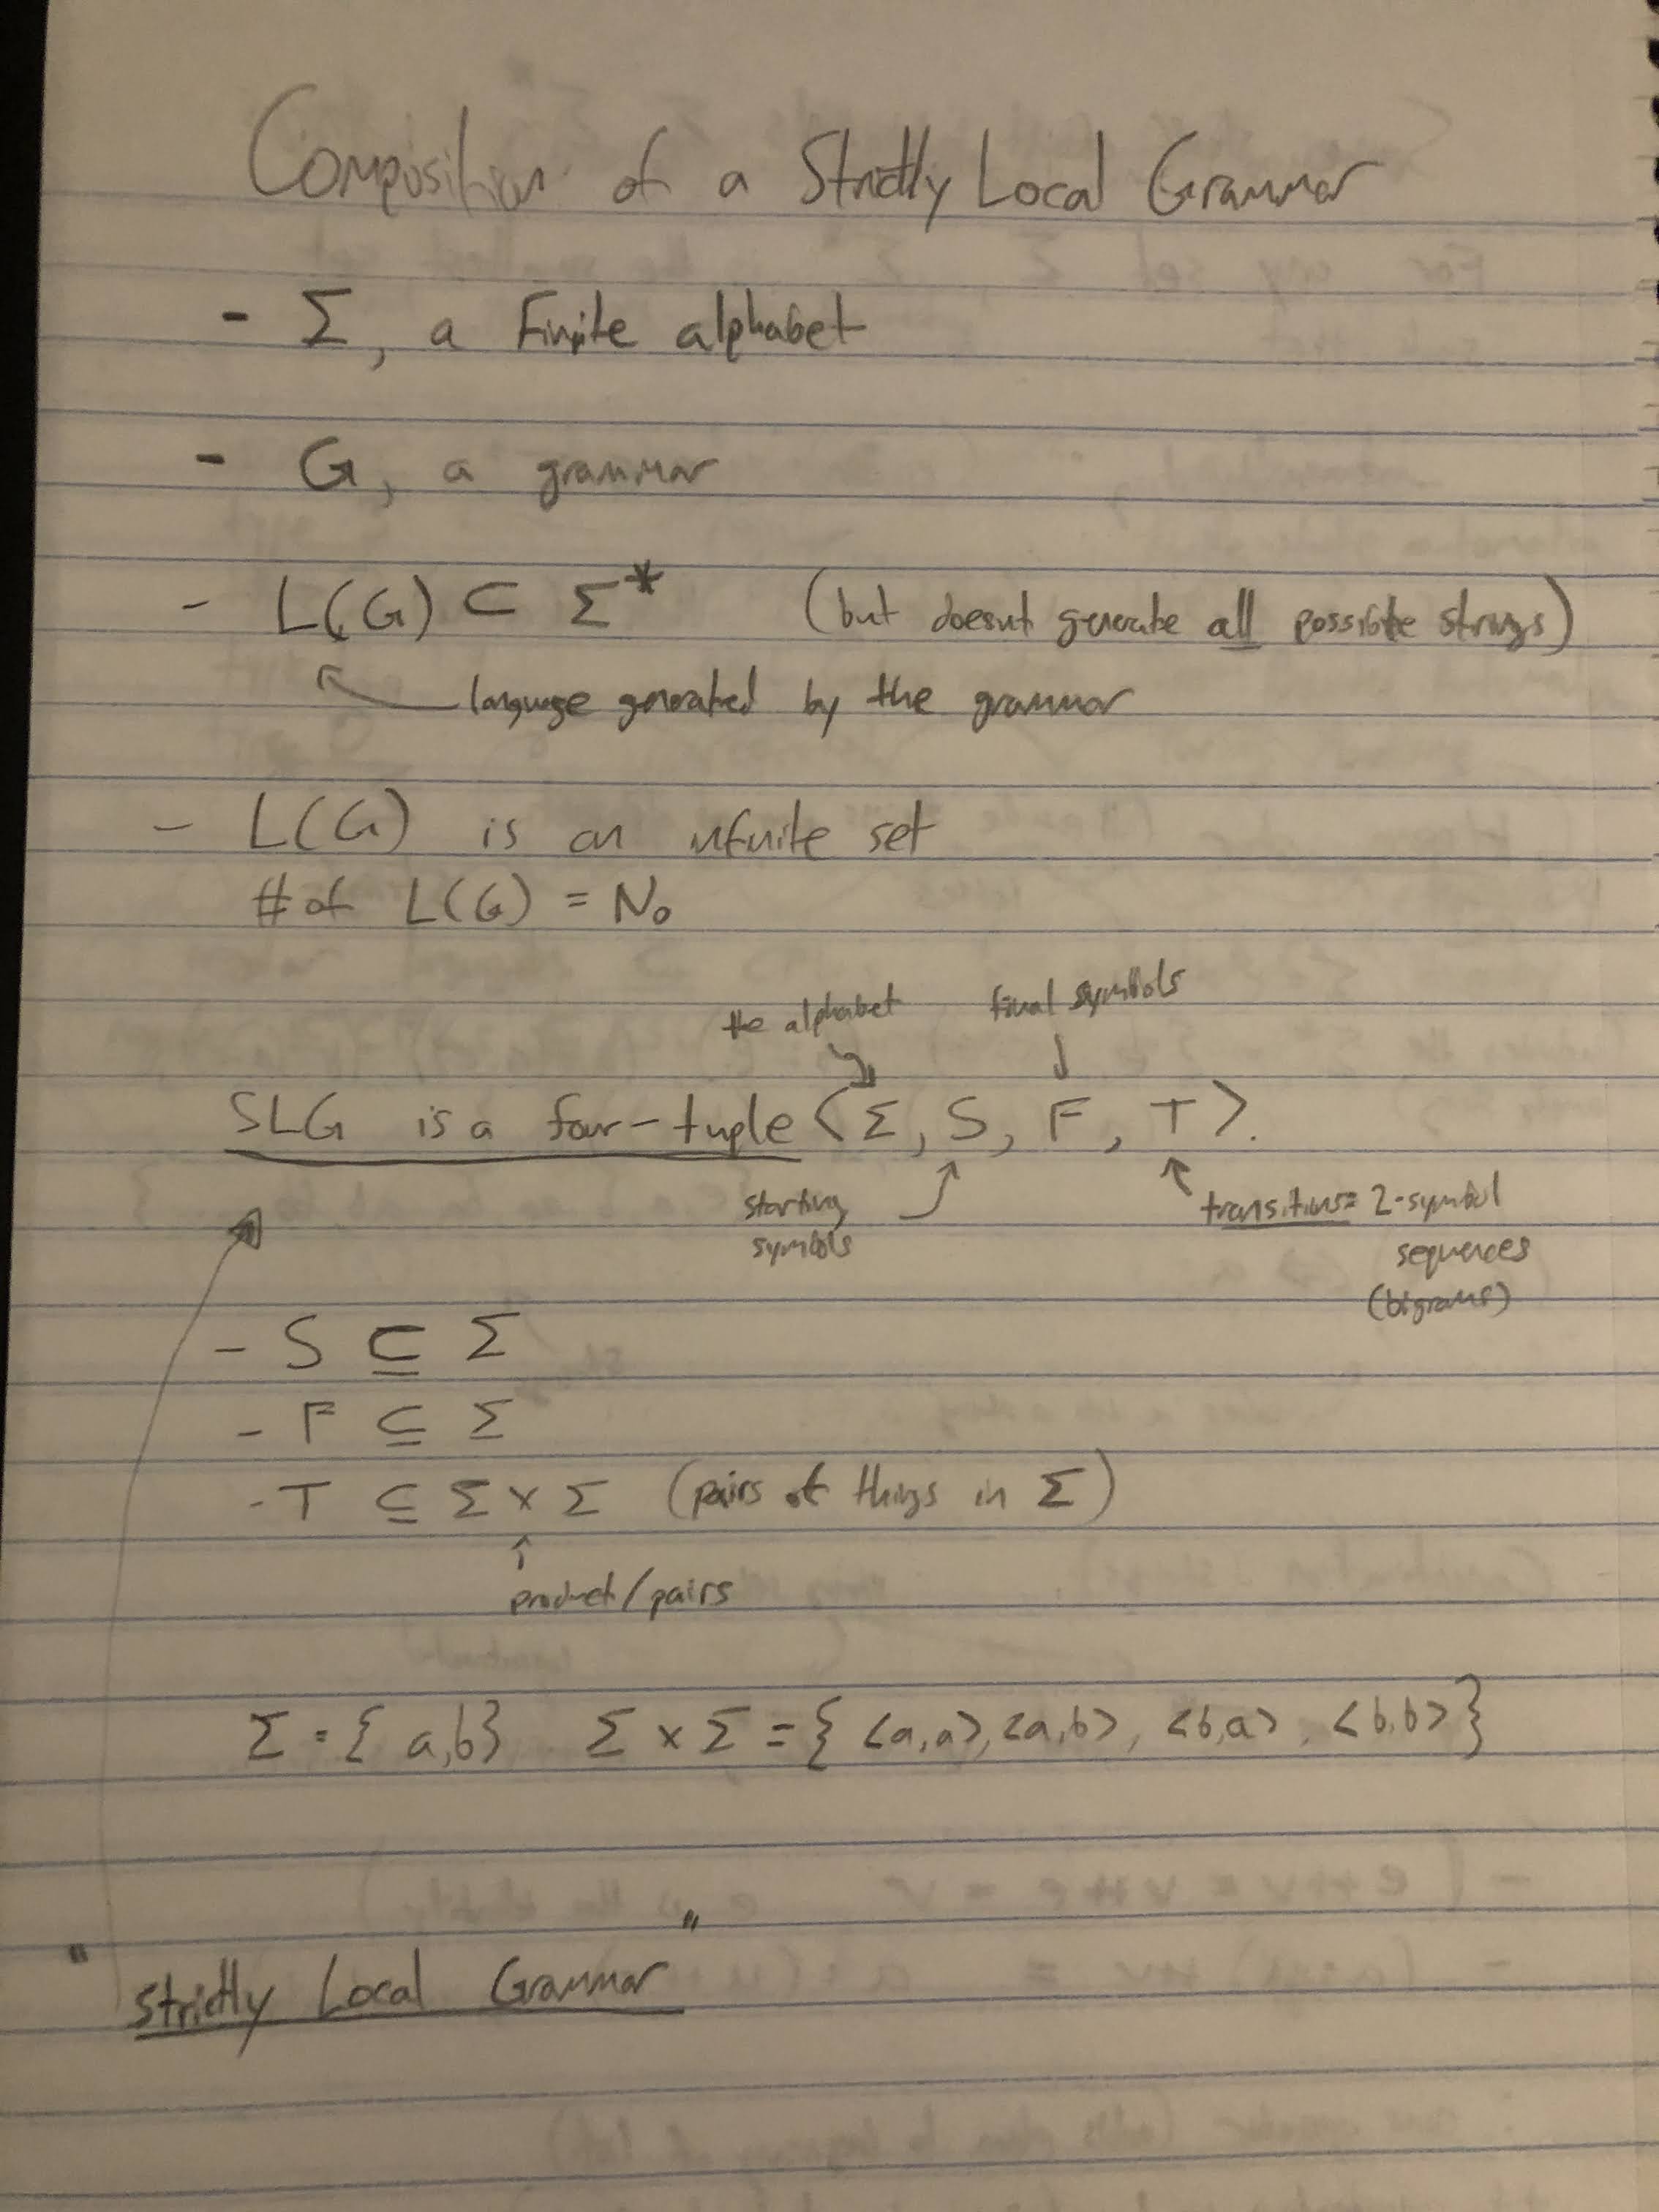 Composition of a Strictly Local Grammar
- Σ, a finite alphabet
- G, a grammar
- L(G) ⊂ Σ* (but doesnt generate all possible strings)
language generated by the grammar
- L(G) is an infinite set
# of L(G) = N₀
the alphabet final symbols
SLG is a four-tuple ⟨Σ, S, F, T⟩.
starting symbols
transitions = 2-symbol
sequences
(bigrams)
- S ⊆ Σ
- F ⊆ Σ
- T ⊆ Σ × Σ (pairs of things in Σ)
product/pairs
Σ = { a,b} Σ × Σ = { <a,a>, <a,b>, <b,a>, <b,b> }
"Strictly Local Grammar"